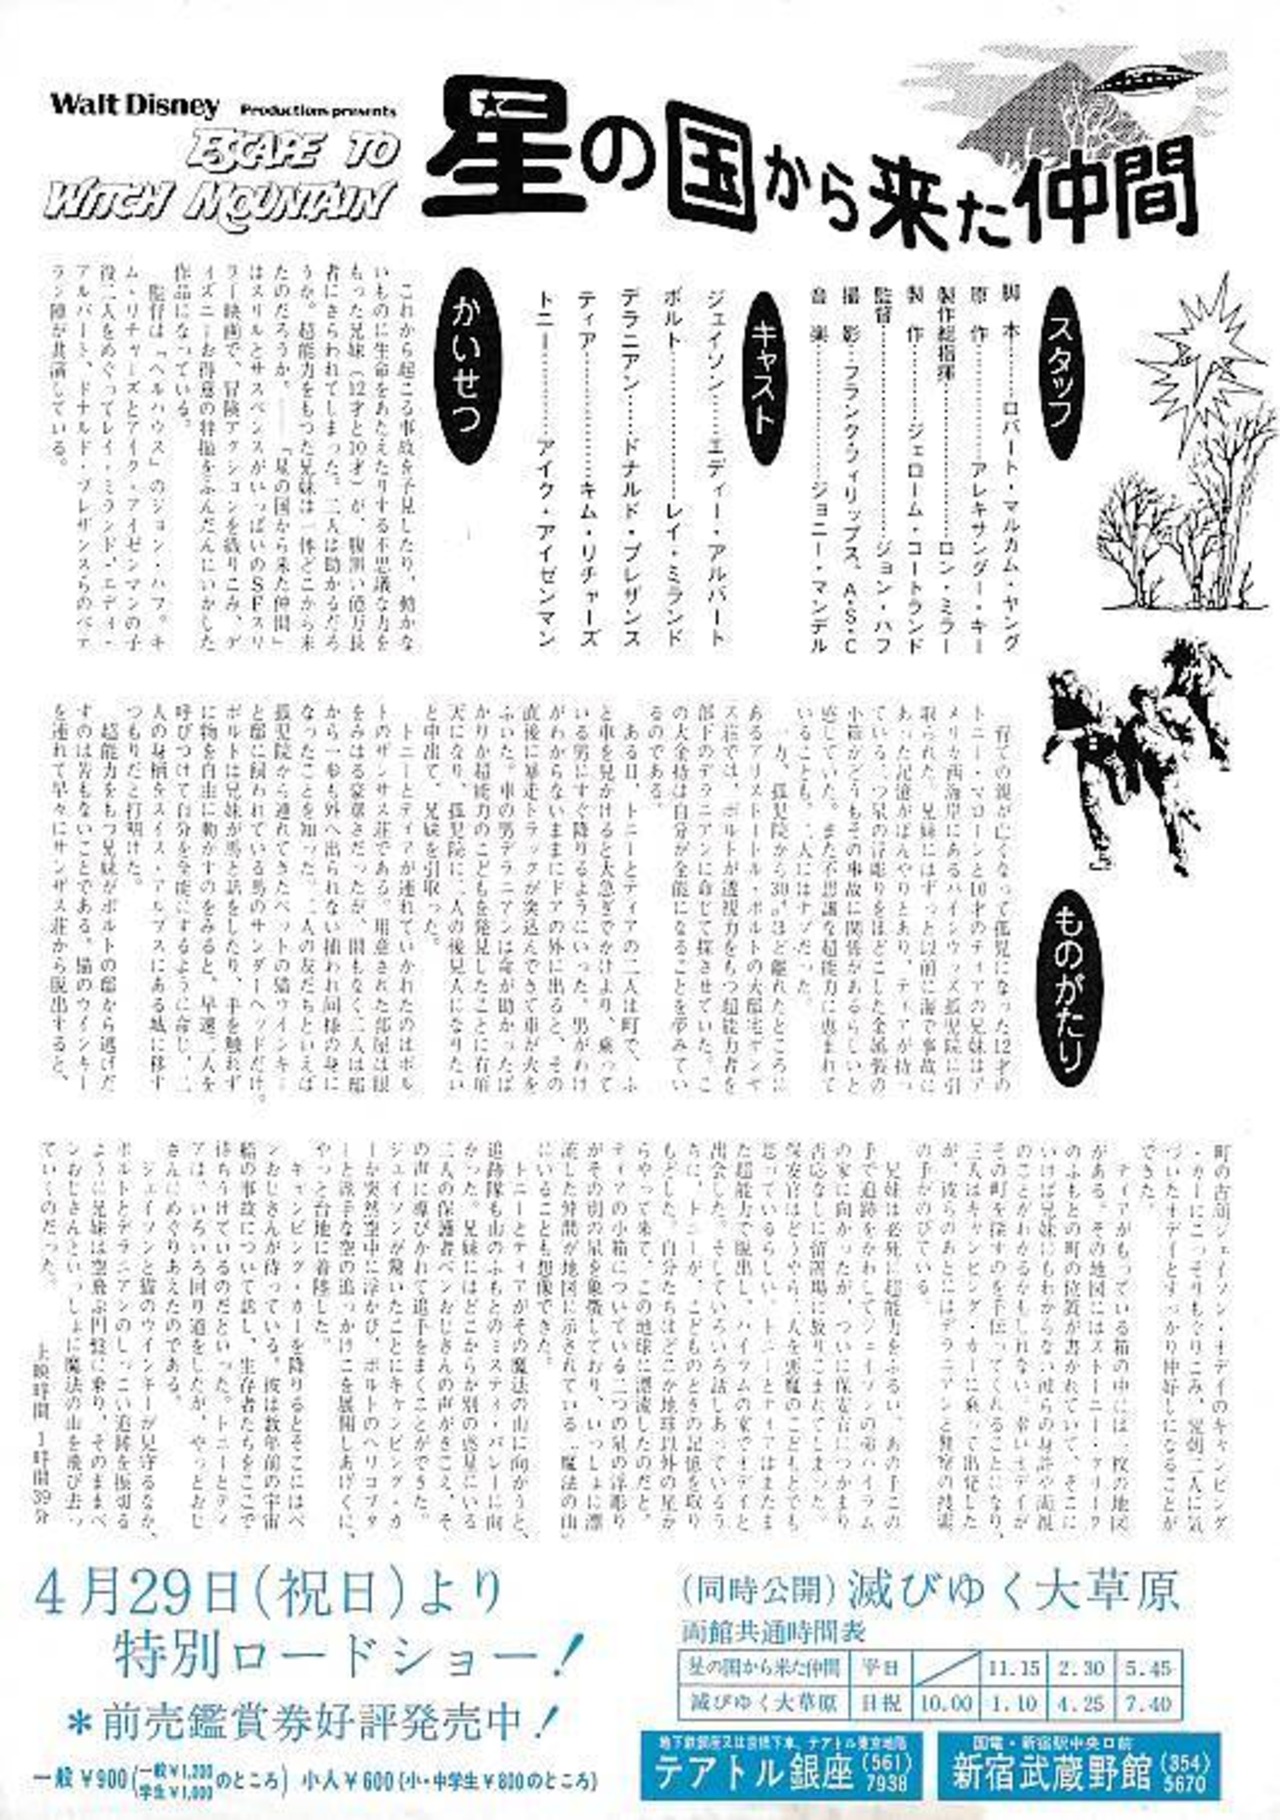 Walt Disney Productions presents
ESCAPE TO
WITCH MOUNTAIN
星の国から来た仲間
スタッフ
脚本………ロバート・マルカム・ヤング
原作………アレキサンダー・キー
製作総指揮………ロン・ミラー
製作………ジェローム・コートランド
監督………ジョン・ハフ
撮影…フランク・フィリップス、A・S・C
音楽………ジョニー・マンデル
キャスト
ジェイソン……エディー・アルバート
ボルト………レイ・ミランド
デラニアン……ドナルド・プレザンス
ティア………キム・リチャーズ
トニー………アイク・アイゼンマン
かいせつ
これから起こる事故を予見したり、動かな
いものに生命をあたえたりする不思議な力を
もった兄妹(12才と10才)が、腹黒い億万長
者にさらわれてしまった。二人は助かるだろ
うか。超能力をもつた兄妹は一体どこから来
たのだろうか。――「星の国から来た仲間」
はスリルとサスペンスがいっぱいのSFスリ
ラー映画で、冒険アクションを織りこみ、デ
ィズニーお得意の特撮をふんだんにいかした
作品になっている。
監督は「ヘルハウス」のジョン・ハフ。キ
ム・リチャーズとアイク・アイゼンマンの子
役二人をめぐってレイ・ミランド、エディ・
アルバート、ドナルド・プレザンスらのベテ
ラン陣が共演している。
ものがたり
育ての親が亡くなって孤児になった12才の
トニー・マローンと10才のティアの兄妹はア
メリカ西海岸にあるパインウッズ孤児院に引
取られた。兄妹にはずっと以前に海で事故に
あった記憶がぼんやりとあり、ティアが持っ
ている二つ星の浮彫りをほどこした金属製の
小箱がどうもその事故に関係があるらしいと
感じていた。また不思議な超能力に恵まれて
いることも、二人にはナゾだった。
一方、孤児院から30㌔ほど離れたところに
あるアリストートル・ボルトの大邸宅サンザ
ス荘では、ボルトが透視力をもつ超能力者を
部下のデラニアンに命じて探させていた。こ
の大金持は自分が全能になることを夢みてい
るのである。
ある日、トニーとティアの二人は町で、ふ
と車を見かけると大急ぎでかけより、乗って
いる男にすぐ降りるようにいった。男がわけ
がわからないままにドアの外に出ると、その
直後に暴走トラックが突込んできて車が火を
ふいた。車の男デラニアンは命が助かったば
かりか超能力のこどもを発見したことに有頂
天になり、孤児院に二人の後見人になりたい
と申出て、兄妹を引取った。
トニーとティアが連れていかれたのはボル
トのザンサス荘である。用意された部屋は眼
をみはる豪華さだったが、間もなく二人は邸
から一歩も外へ出られない捕われ同様の身に
なったことを知った。二人の友だちといえば
孤児院から連れてきたペットの猫ウィンキー
と邸に飼われている馬のサンダーヘッドだけ。
ボルトは兄妹が馬と話をしたり、手を触れず
に物を自由に動かすのをみると、早速二人を
呼びつけて自分を全能にするように命じ、二
人の身柄をスイス・アルプスにある城に移す
つもりだと打明けた。
超能力をもつ兄妹がボルトの邸から逃げだ
すのは苦もないことである。猫のウィンキー
を連れて早々にサンザス荘から脱出すると、
町の古顔ジェイソン・オデイのキャンピング
・カーにこっそりもぐりこみ、翌朝二人に気
づいたオデイとすっかり仲好しになることが
できた。
ティアがもっている箱の中には一枚の地図
がある。その地図にはストーニー・クリーク
のふもとの町の位置が書かれていて、そこに
いけば兄妹にもわからない彼らの身許や両親
のことがわかるかもしれない。幸いオデイが
その町を探すのを手伝ってくれることになり、
三人はキャンピング・カーに乗って出発した
が、彼らのあとにはデラニアンと警察の捜索
の手がのびている。
兄妹は必死に超能力をふるい、あの手この
手で追跡をかわしてジェイソンの弟ハイラム
の家に向かったが、ついに保安官につかまり
否応なしに留置場に放りこまれてしまった。
保安官はどうやら二人を悪魔のこどもとでも
思っているらしい。トニーとティアはまたま
た超能力で脱出し、ハイラムの家でオデイと
出会した。そしていろいろ話しあっているう
ちに、トニーが、こどものときの記憶を取り
もどした。自分たちはどこか地球以外の星か
らやって来て、この地球に漂流したのだと。
ティアの小箱についている二つの星の浮彫り
がその別の星を象徴しており、いっしょに漂
流した仲間が地図に示されている「魔法の山」
にいることも想像できた。
トニーとティアがその魔法の山に向かうと、
追跡隊も山のふもとのミスティ・バレーに向
かった。兄妹にはどこからか別の惑星にいる
二人の保護者ベンおじさんの声がきこえ、そ
の声に導びかれて追手をまくことができた。
ジェイソンが驚いたことにキャンピング・カ
ーが突然空中に浮かび、ボルトのヘリコプタ
ーと派手な空の追っかけっこを展開しあげくに、
やっと台地に着陸した。
キャンピング・カーを降りるとそこにはベ
ンおじさんが待っている。彼は数年前の宇宙
船の事故について話し、生存者たちをここで
待ちうけているのだといった。トニーとティ
アは、いろいろ回り道をしたが、やっとおじ
さんにめぐりあえたのである。
ジェイソンと猫のウインキーが見守るなか、
ボルトとデラニアンのしつこい追跡を振切る
ように兄妹は空飛ぶ円盤に乗り、そのままベ
ンおじさんといっしょに魔法の山を飛び去っ
ていくのだった。
上映時間 1時間39分
4月29日(祝日)より
特別ロードショー!
＊前売鑑賞券好評発売中!
一般¥900(一般¥1,200 学生¥1,000のところ) 小人¥600(小・中学生¥800のところ)
(同時公開)滅びゆく大草原
両館共通時間表
星の国から来た仲間 平日 11.15 2.30 5.45
滅びゆく大草原 日祝 10.00 1.10 4.25 7.40
地下鉄銀座又は京橋下車、テアトル東京地階
テアトル銀座(561)7938
国電・新宿駅中央口前
新宿武蔵野館(354)5670